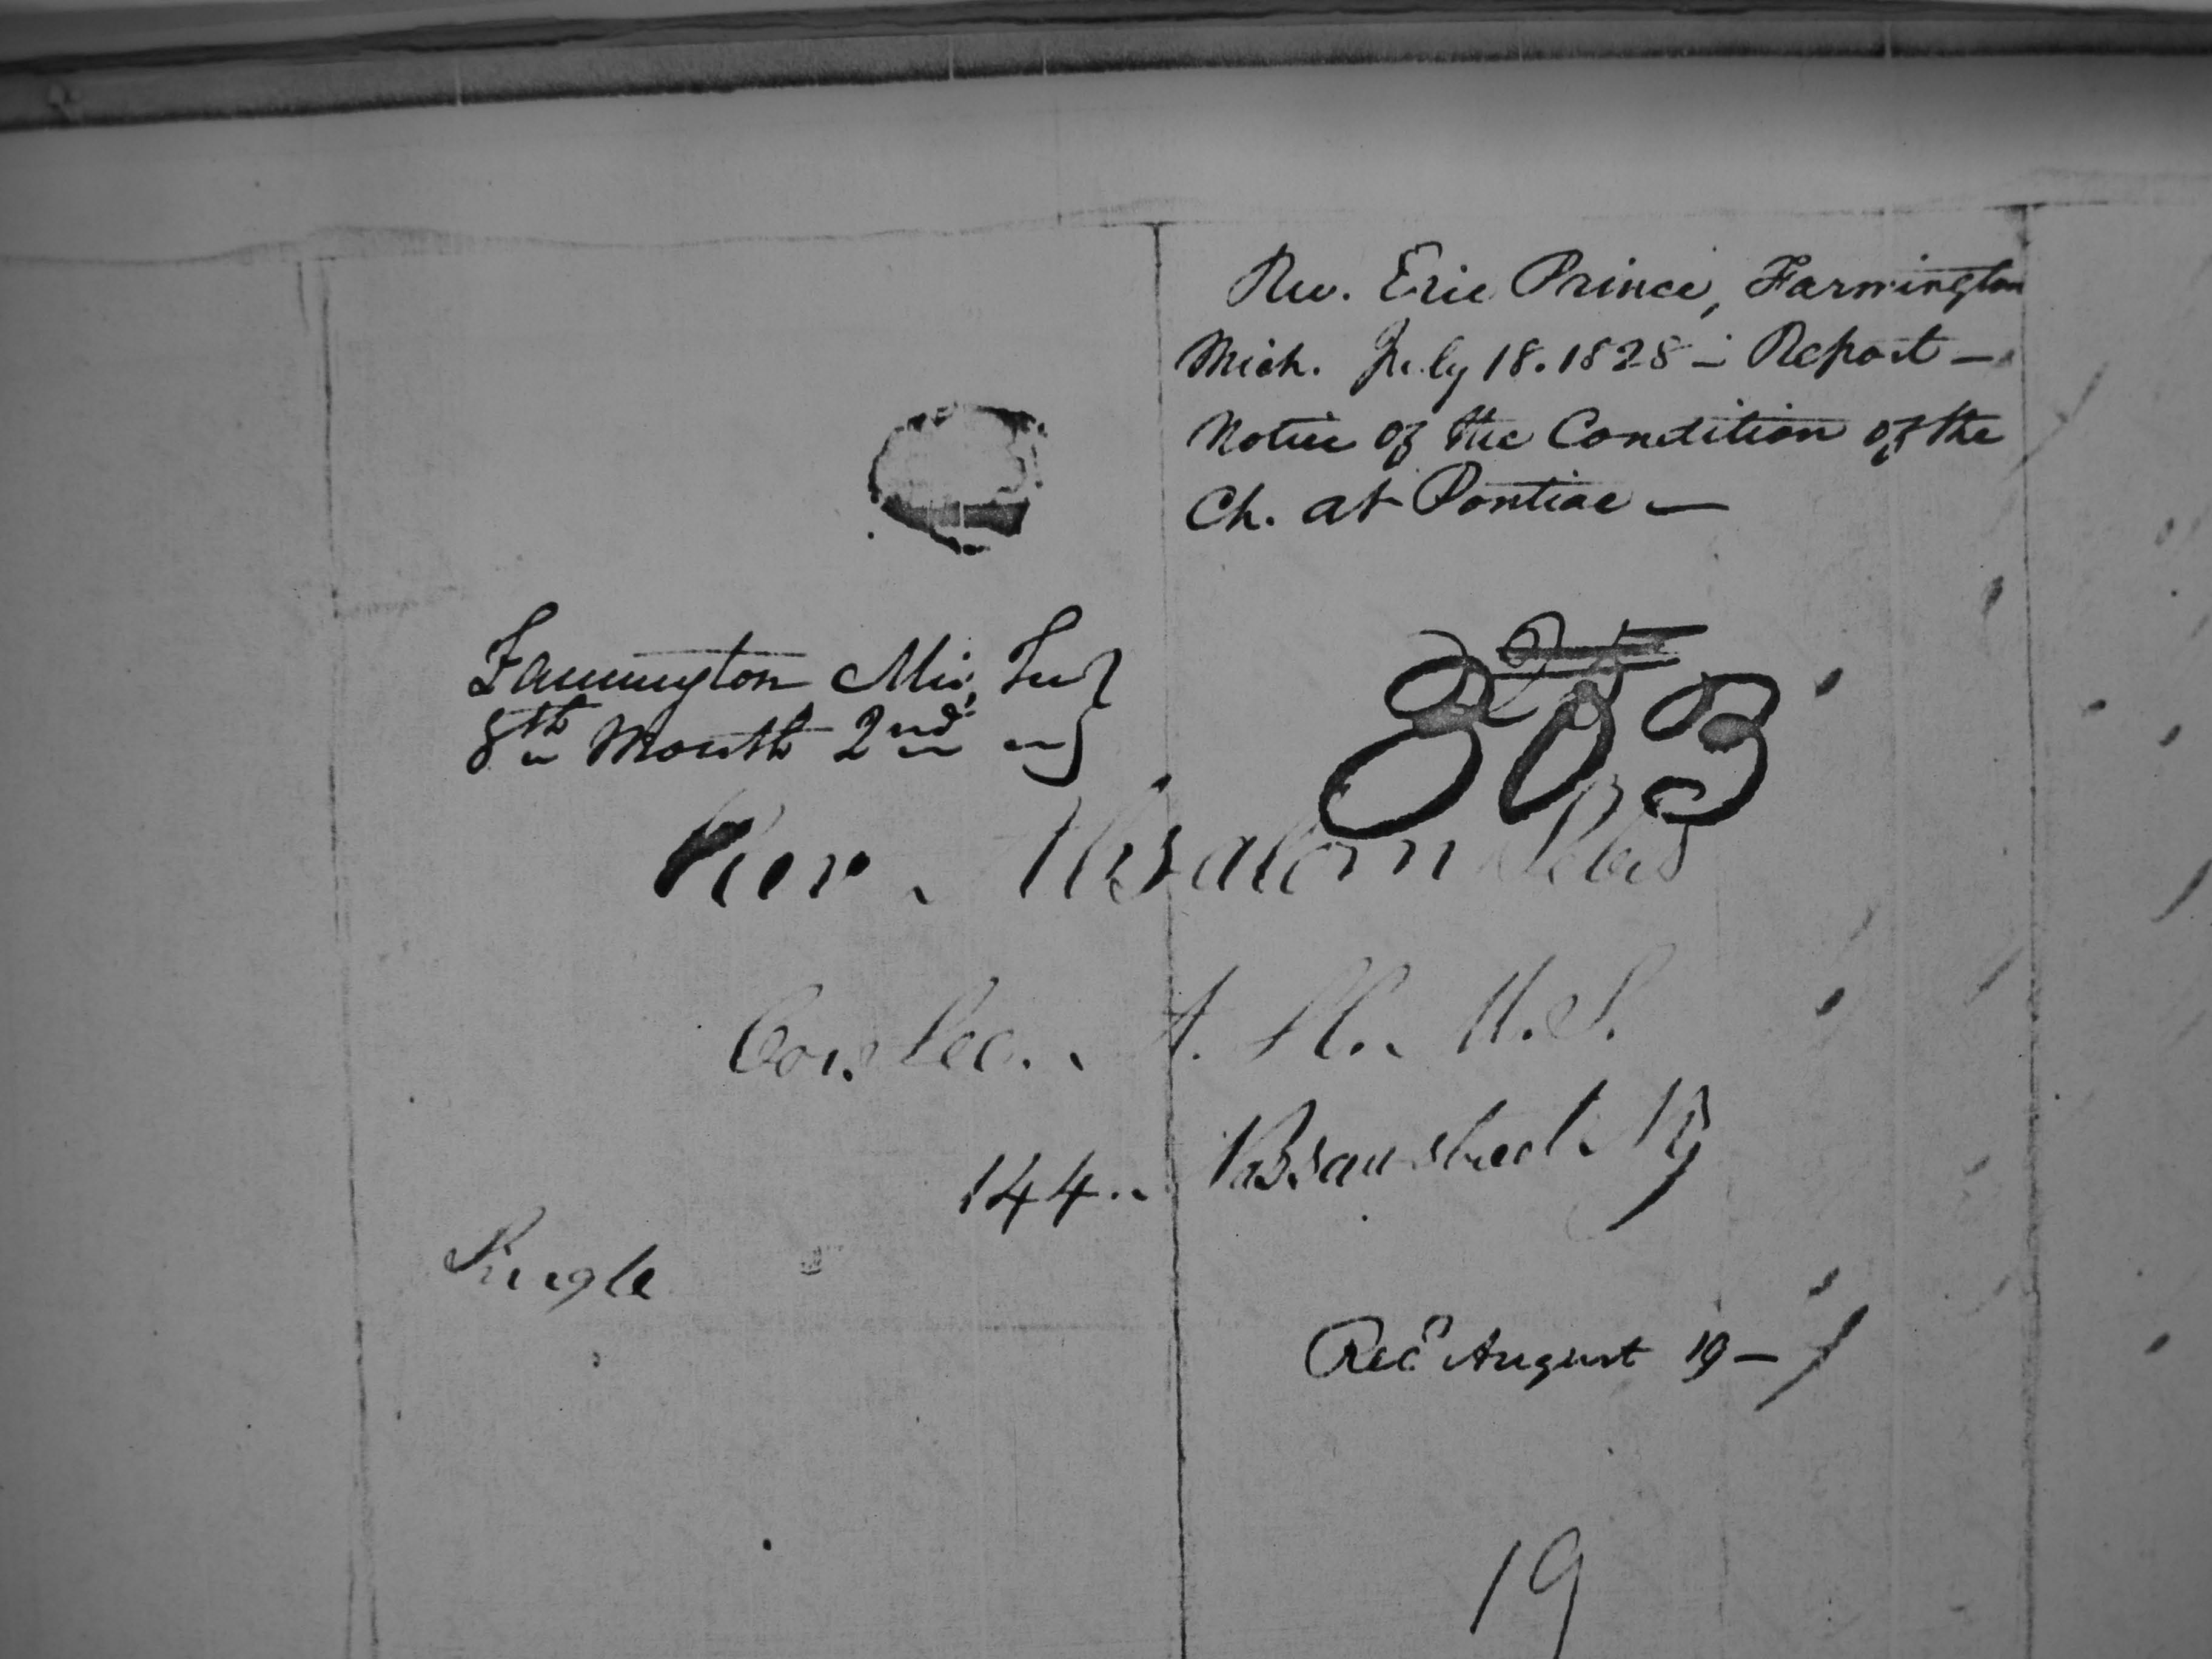 Rev. Eric Prince, Farmington
Mich. July 18. 1828 – Report –
Notice of the Condition of the
Ch. at Pontiac —
Farmington Mic, Ter
8th Month 2nd
25
803
Rev. Absalom Peters
Cor. Sec. A. H. M. S.
144 Nassau street N Y
Single
Recd August 19 –
19